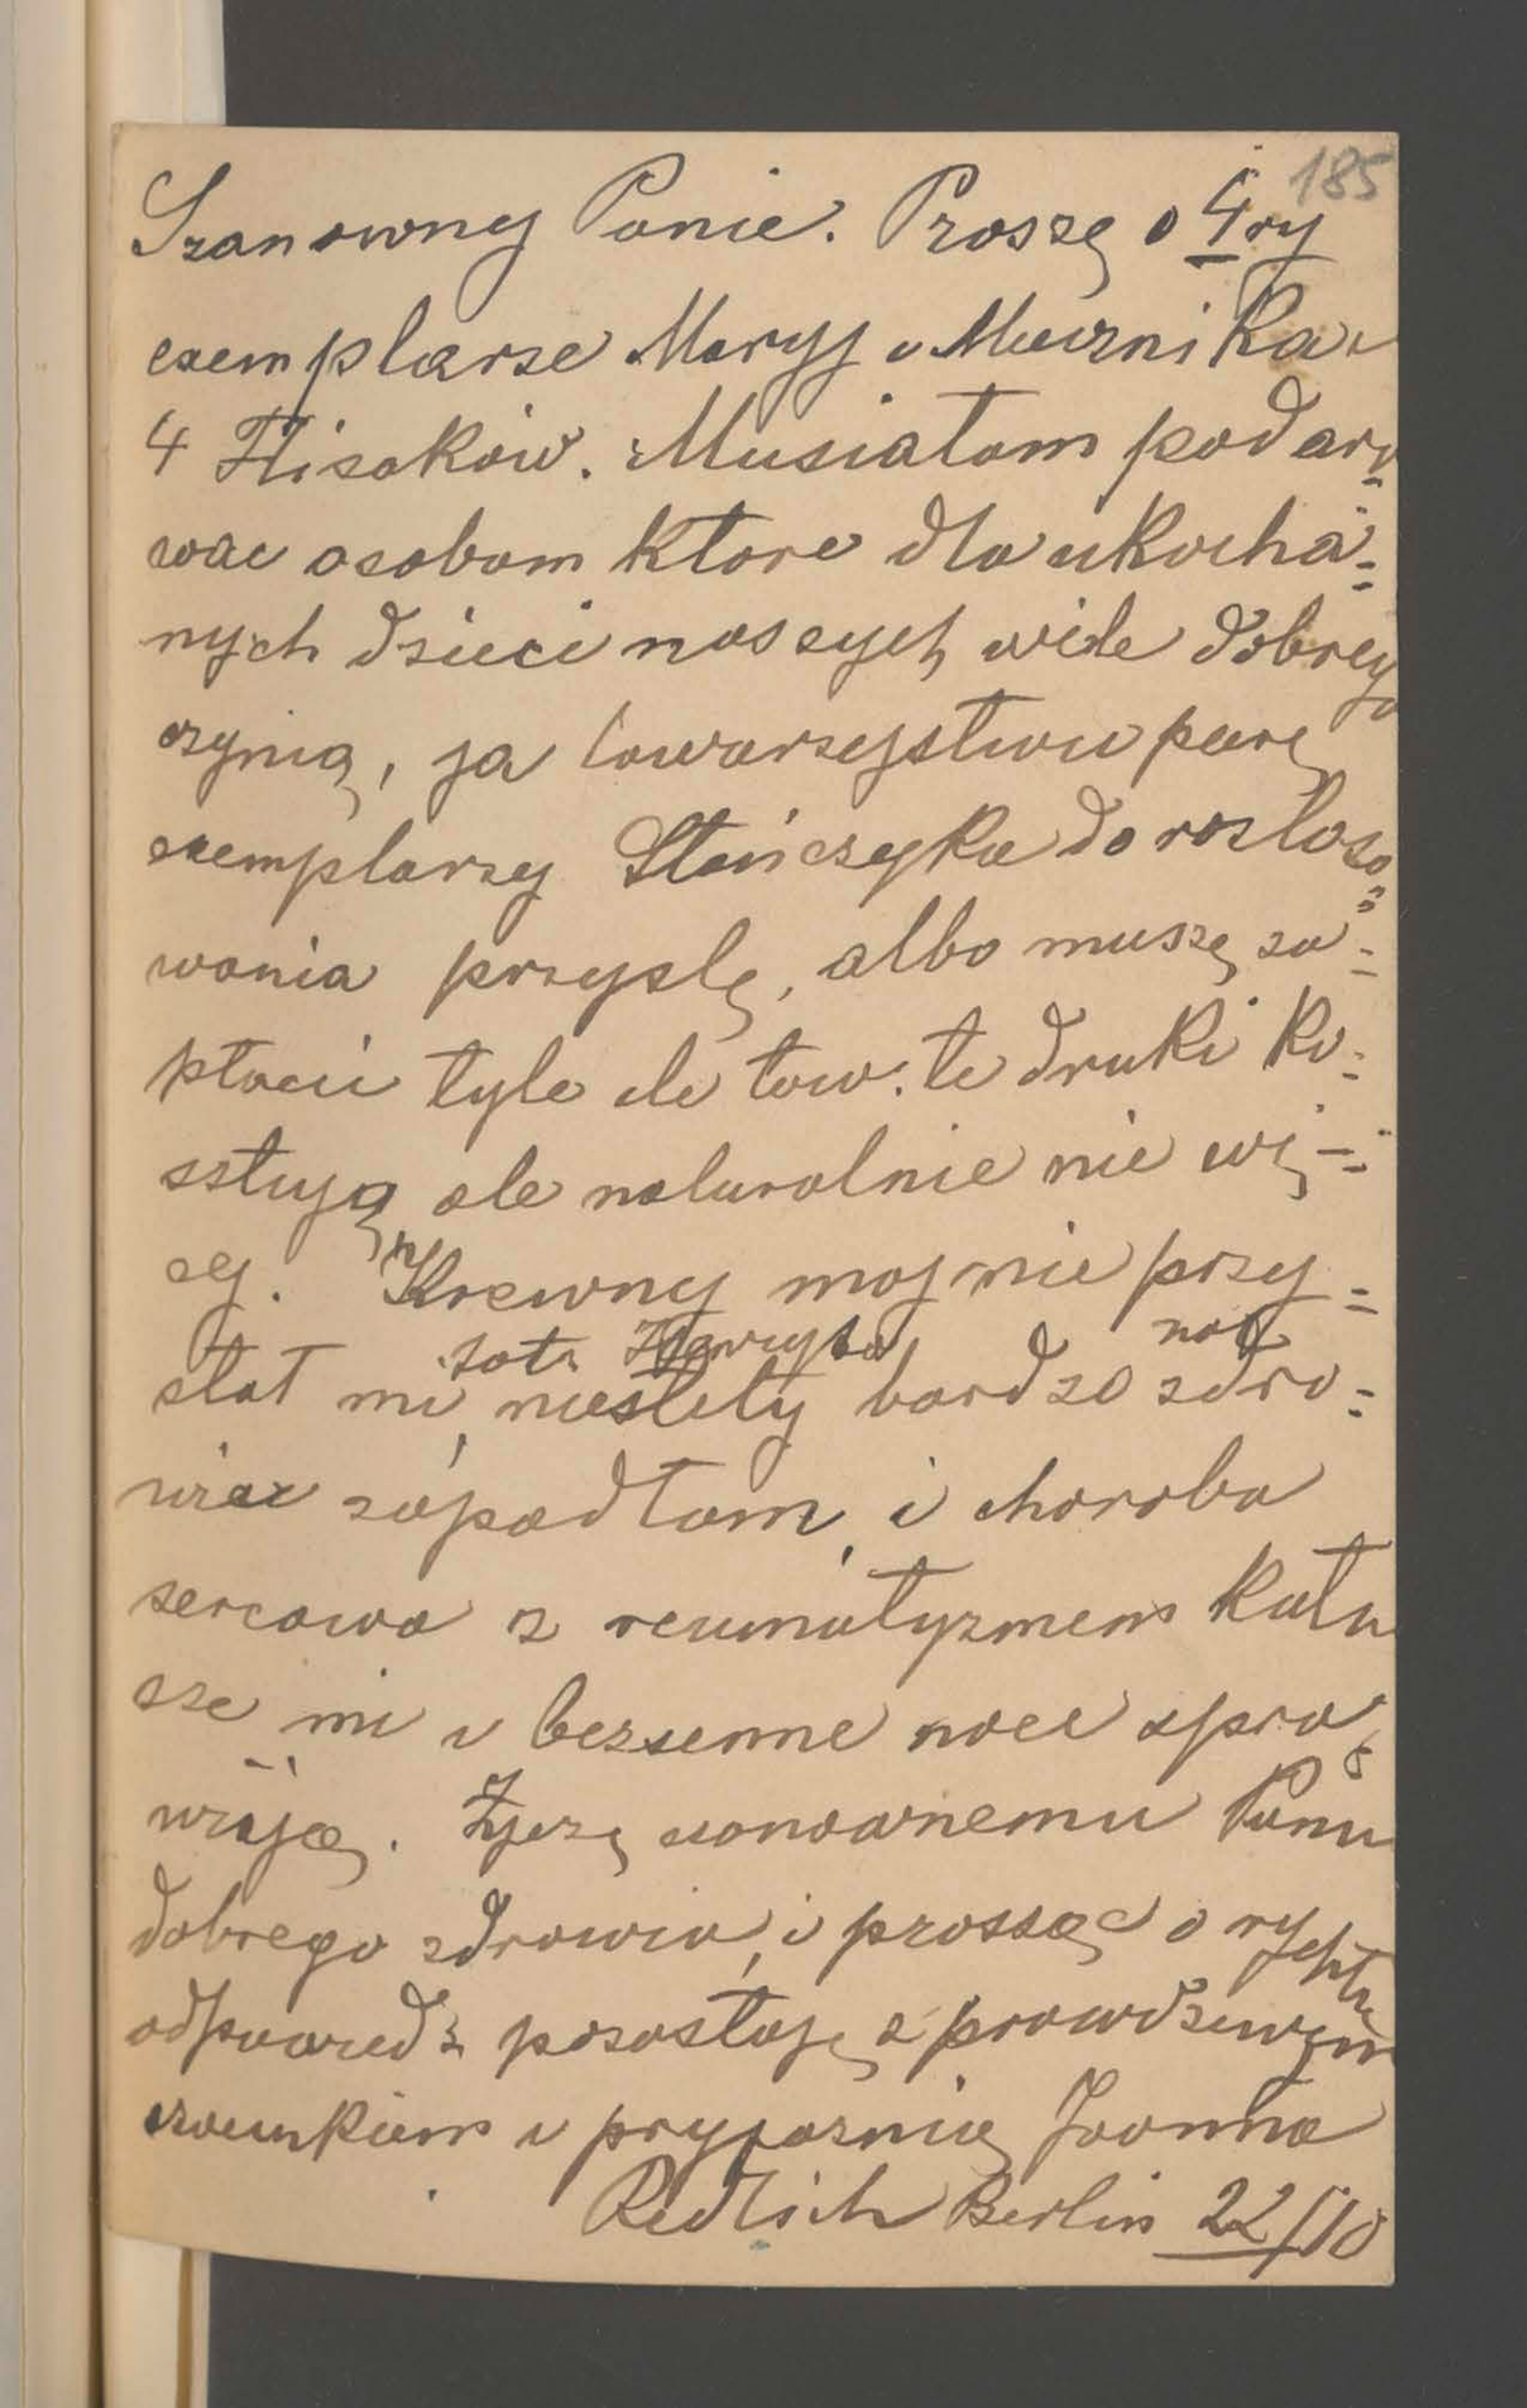 185
Szanowny Panie. Proszę o 4ry
exemplarze Maryj i Muznika i
4 Flisaków. Musiałam podaro=
wac osobom ktore dla ukocha=
nych dzieci naszych wiele dobrego
czynią, ja towarzystwu parę
exemplarzy Stańczyka do rozloso=
wania przyslę, albo muszę za=
płacic tyle ile tow. te druki ko=
sztują ale naturalnie nie wię=
cej. Krewny moj nie przy=
słał mi, niestety bardzo na zdro=
wiu zapadłam, i choroba
sercowa z reumatyzmem katu
sze mi i bezsenne noce spra
wiają. Życzę szanownemu Panu
dobrego zdrowia, i prosząc o rychłą
odpowiedź pozostaję z prawdziwym
szacunkiem i pryjaznią Joanna
Redlich Berlin 22/10